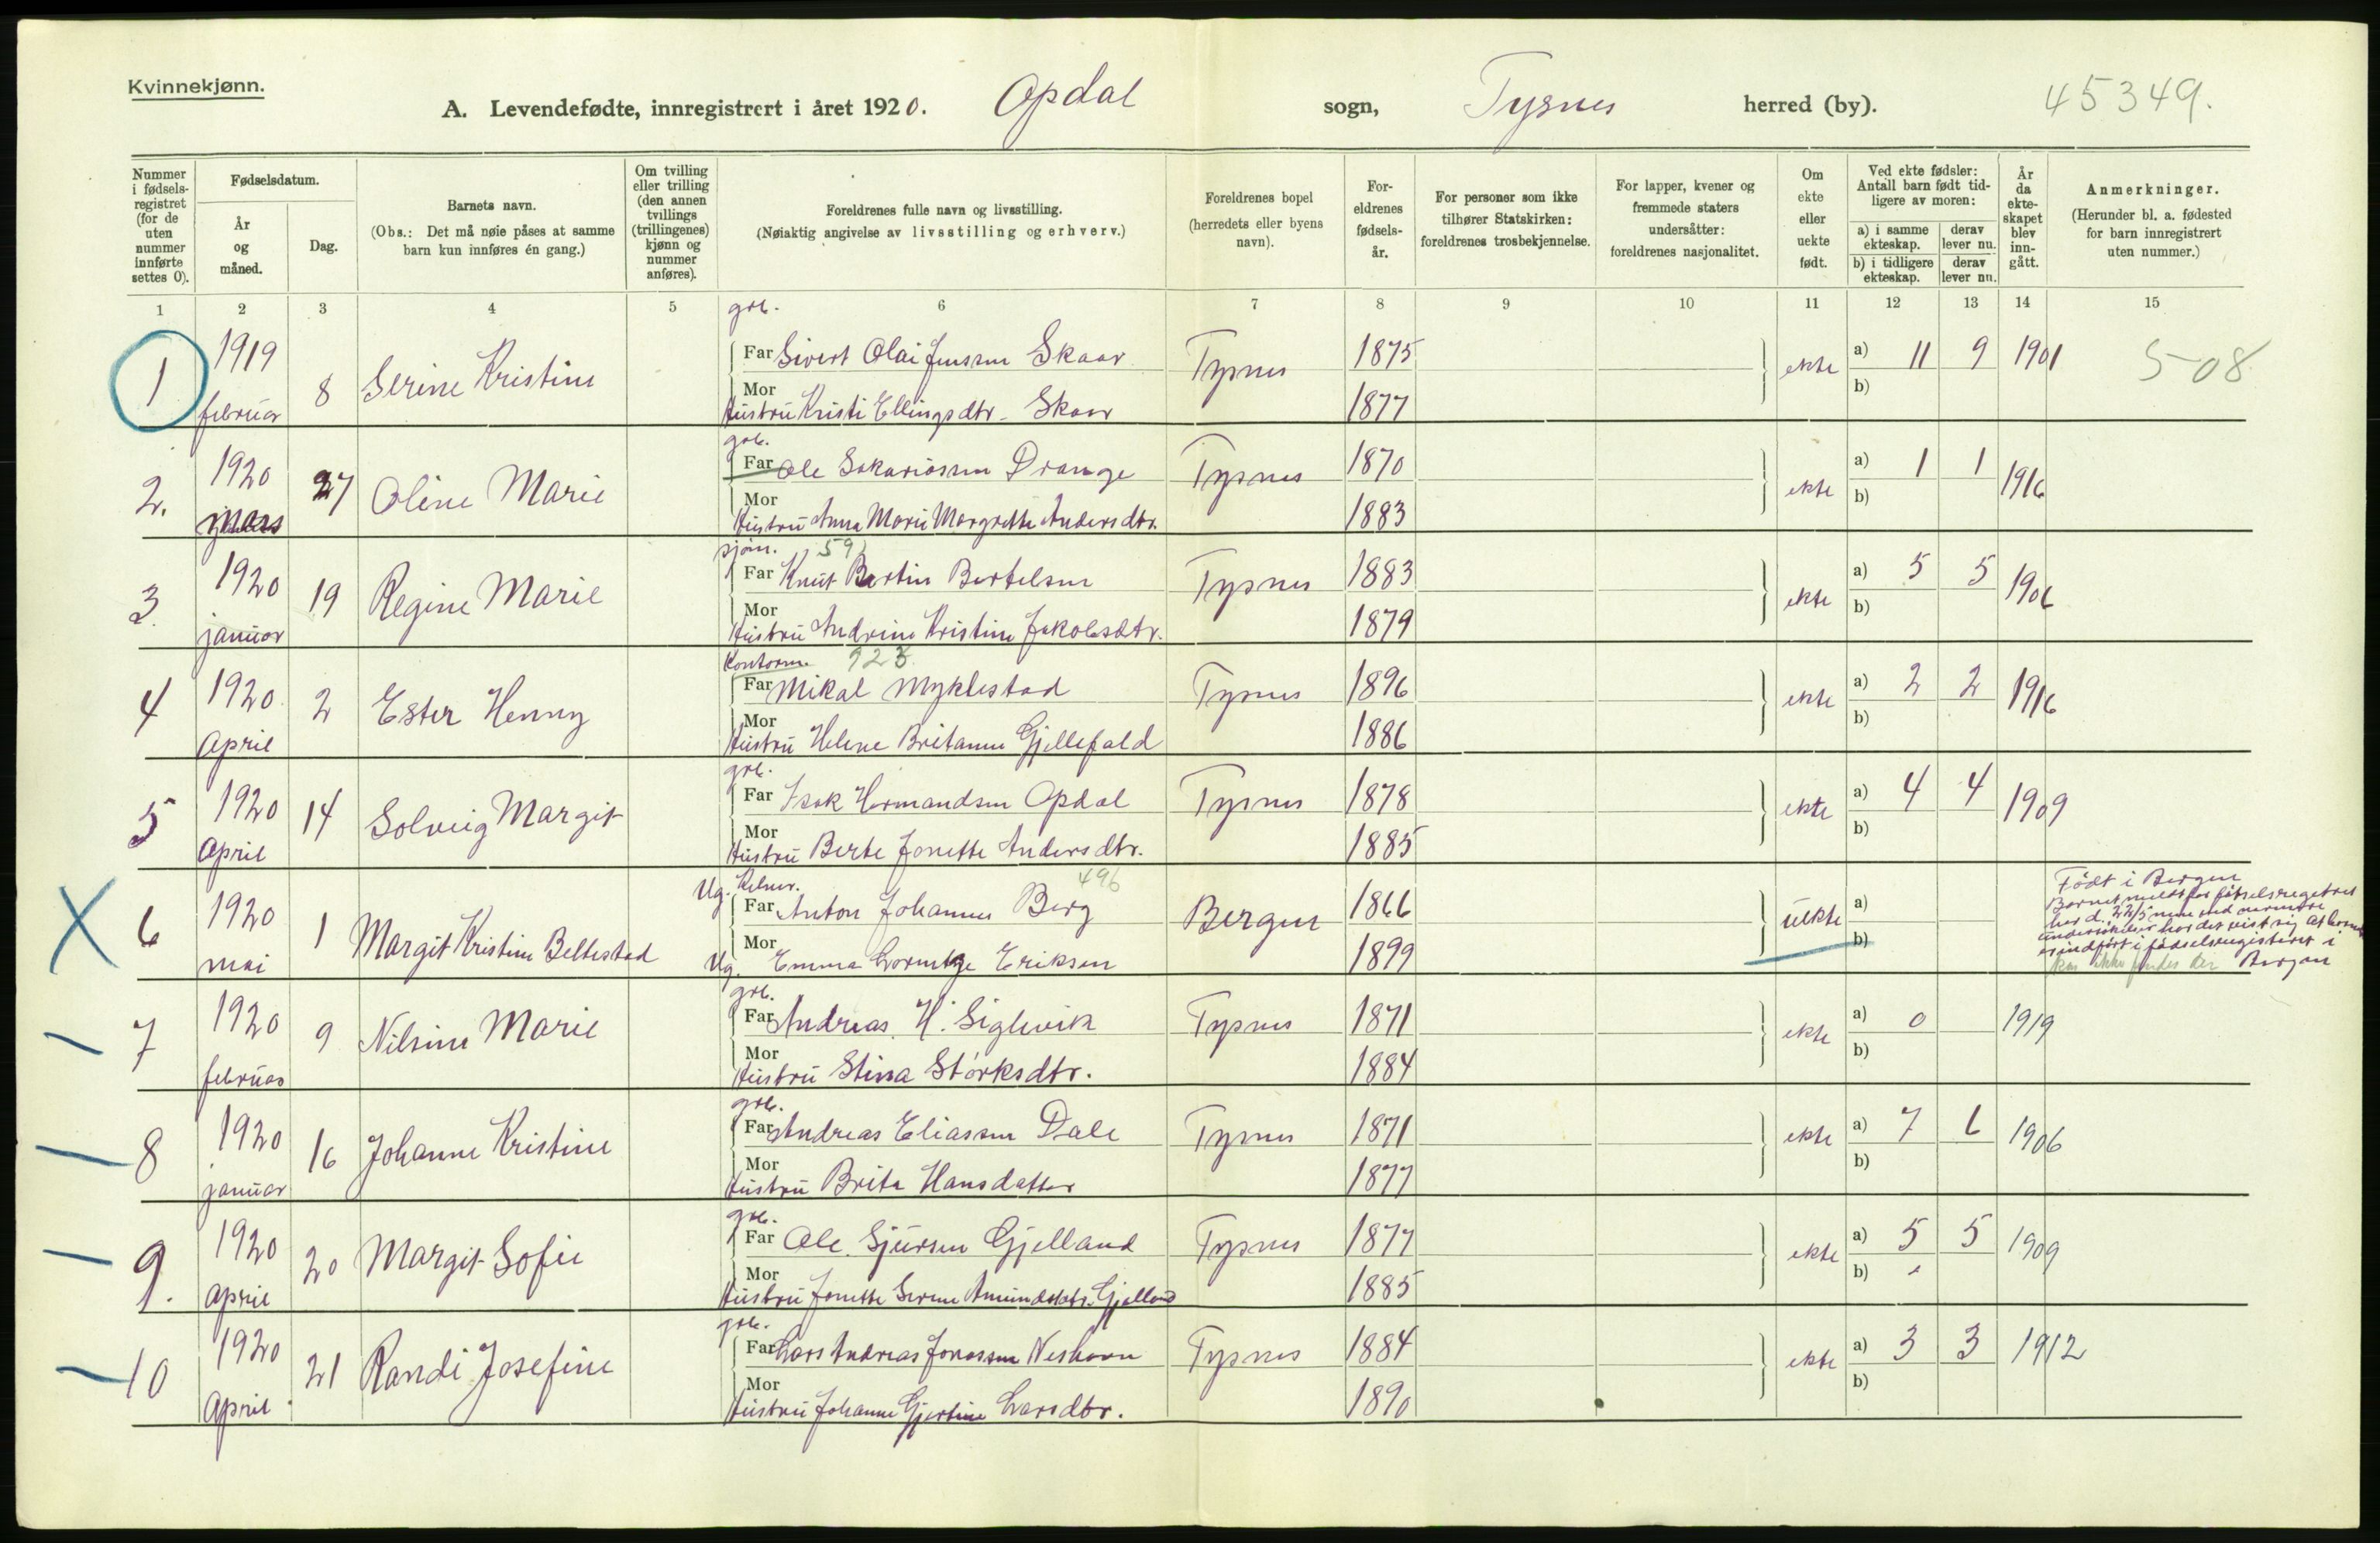 Kvinnekjønn.
A. Levendefødte, innregistrert i året 1920. Opdal sogn, Tysnes herred (by). 45349.
Nummer i fødselsregistret (for de uten nummer innførte settes 0).
Fødselsdatum.
År og måned.
Dag.
Barnets navn.
(Obs.: Det må nøie påses at samme barn kun innføres én gang.)
Om tvilling eller trilling (den annen tvillings (trillingenes) kjønn og nummer anføres).
Foreldrenes fulle navn og livsstilling.
(Nøiaktig angivelse av livsstilling og erhverv.)
Foreldrenes bopel (herredets eller byens navn).
Foreldrenes fødselsår.
For personer som ikke tilhører Statskirken: foreldrenes trosbekjennelse.
For lapper, kvener og fremmede staters undersåtter: foreldrenes nasjonalitet.
Om ekte eller uekte født.
Ved ekte fødsler: Antall barn født tidligere av moren:
a) i samme ekteskap. derav lever nu.
b) i tidligere ekteskap. derav lever nu.
År da ekteskapet blev inngått.
Anmerkninger.
(Herunder bl. a. fødested for barn innregistrert uten nummer.)
1 2 3 4 5 6 7 8 9 10 11 12 13 14 15
grb.
1 1919 februar 8 Serine Kristine Far Sivert Olai Jenssen Skaar Tysnes 1875 ekte a) 11 9 1901 508
Mor Hustru Kristi Ellingsdtr. Skaar 1877 b)
grb.
2. 1920 mars 27 Oline Marie Far Ole Sakariassen Drange Tysnes 1870 ekte a) 1 1 1916
Mor Hustru Anna Marie Margrethe Andersdtr. 1883 b)
sjøm. 591
3. 1920 januar 19 Regine Marie Far Knut Bertin Bertelsen Tysnes 1883 ekte a) 5 5 1906
Mor Hustru Andrine Kristine Jakobsdtr. 1879 b)
Kontorm. 923
4 1920 April 2 Ester Henny Far Mikal Myklestad Tysnes 1896 ekte a) 2 2 1916
Mor Hustru Helene Britanne Gjellefald 1886 b)
grb.
5 1920 April 14 Solveig Margit Far Isak Hermandsen Opdal Tysnes 1878 ekte a) 4 4 1909
Mor Hustru Berte Jonette Andersdtr. 1885 b)
Ug. Kelner. 496
6 1920 mai 1 Margit Kristine Beltestad Far Anton Johannes Berg Bergen 1866 uekte a)
Mor Ug. Emma Eriksen 1899 b)
Født i Bergen
Barnet meldt for fødselsregistret
her d. 22/5 men ved nærmere
undersøkelse har det vist sig at barnet
er indført i fødselsregistret i
Bergen
kan ikke findes der
grb.
7 1920 februar 9 Nilsine Marie Far Andreas H. Siglevik Tysnes 1871 ekte a) 0 1919
Mor Hustru Stina Størksdtr. 1884 b)
grb.
8 1920 januar 16 Johanne Kristine Far Andreas Eliassen Dale Tysnes 1871 ekte a) 7 6 1906
Mor Hustru Brita Hansdatter 1877 b)
grb.
9. 1920 April 20 Margit Sofie Far Ole Sjursen Gjelland Tysnes 1877 ekte a) 5 5 1909
Mor Hustru Jonette Serine Amundsdatr. Gjelland 1885 b)
grb.
10 1920 April 21 Randi Josefine Far Lars Andreas Jonassen Neshavn Tysnes 1884 ekte a) 3 3 1912
Mor Hustru Johanne Gjertine Larsdtr. 1890 b)